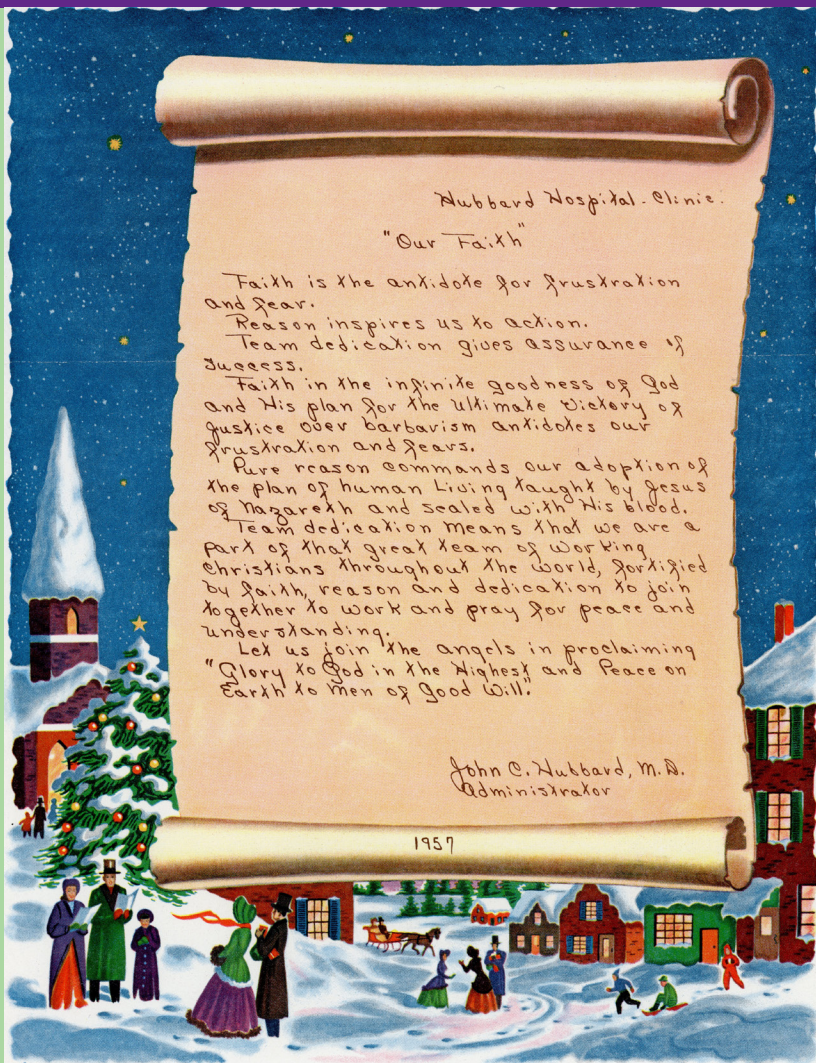 Hubbard Hospital-Clinic.
"Our Faith"
Faith is the antidote for frustration
and fear.
Reason inspires us to action.
Team dedication gives assurance of
success.
Faith in the infinite goodness of God
and His plan for the ultimate victory of
justice over barbarism antidotes our
frustration and fears.
Pure reason commands our adoption of
the plan of human Living taught by Jesus
of Nazareth and sealed with His blood.
Team dedication means that we are a
part of that great team of working
Christians throughout the world, fortified
by faith, reason and dedication to join
together to work and pray for peace and
understanding.
Let us join the angels in proclaiming
"Glory to God in the Highest and Peace on
Earth to Men of Good Will."
John C. Hubbard, M.D.
Administrator
1957